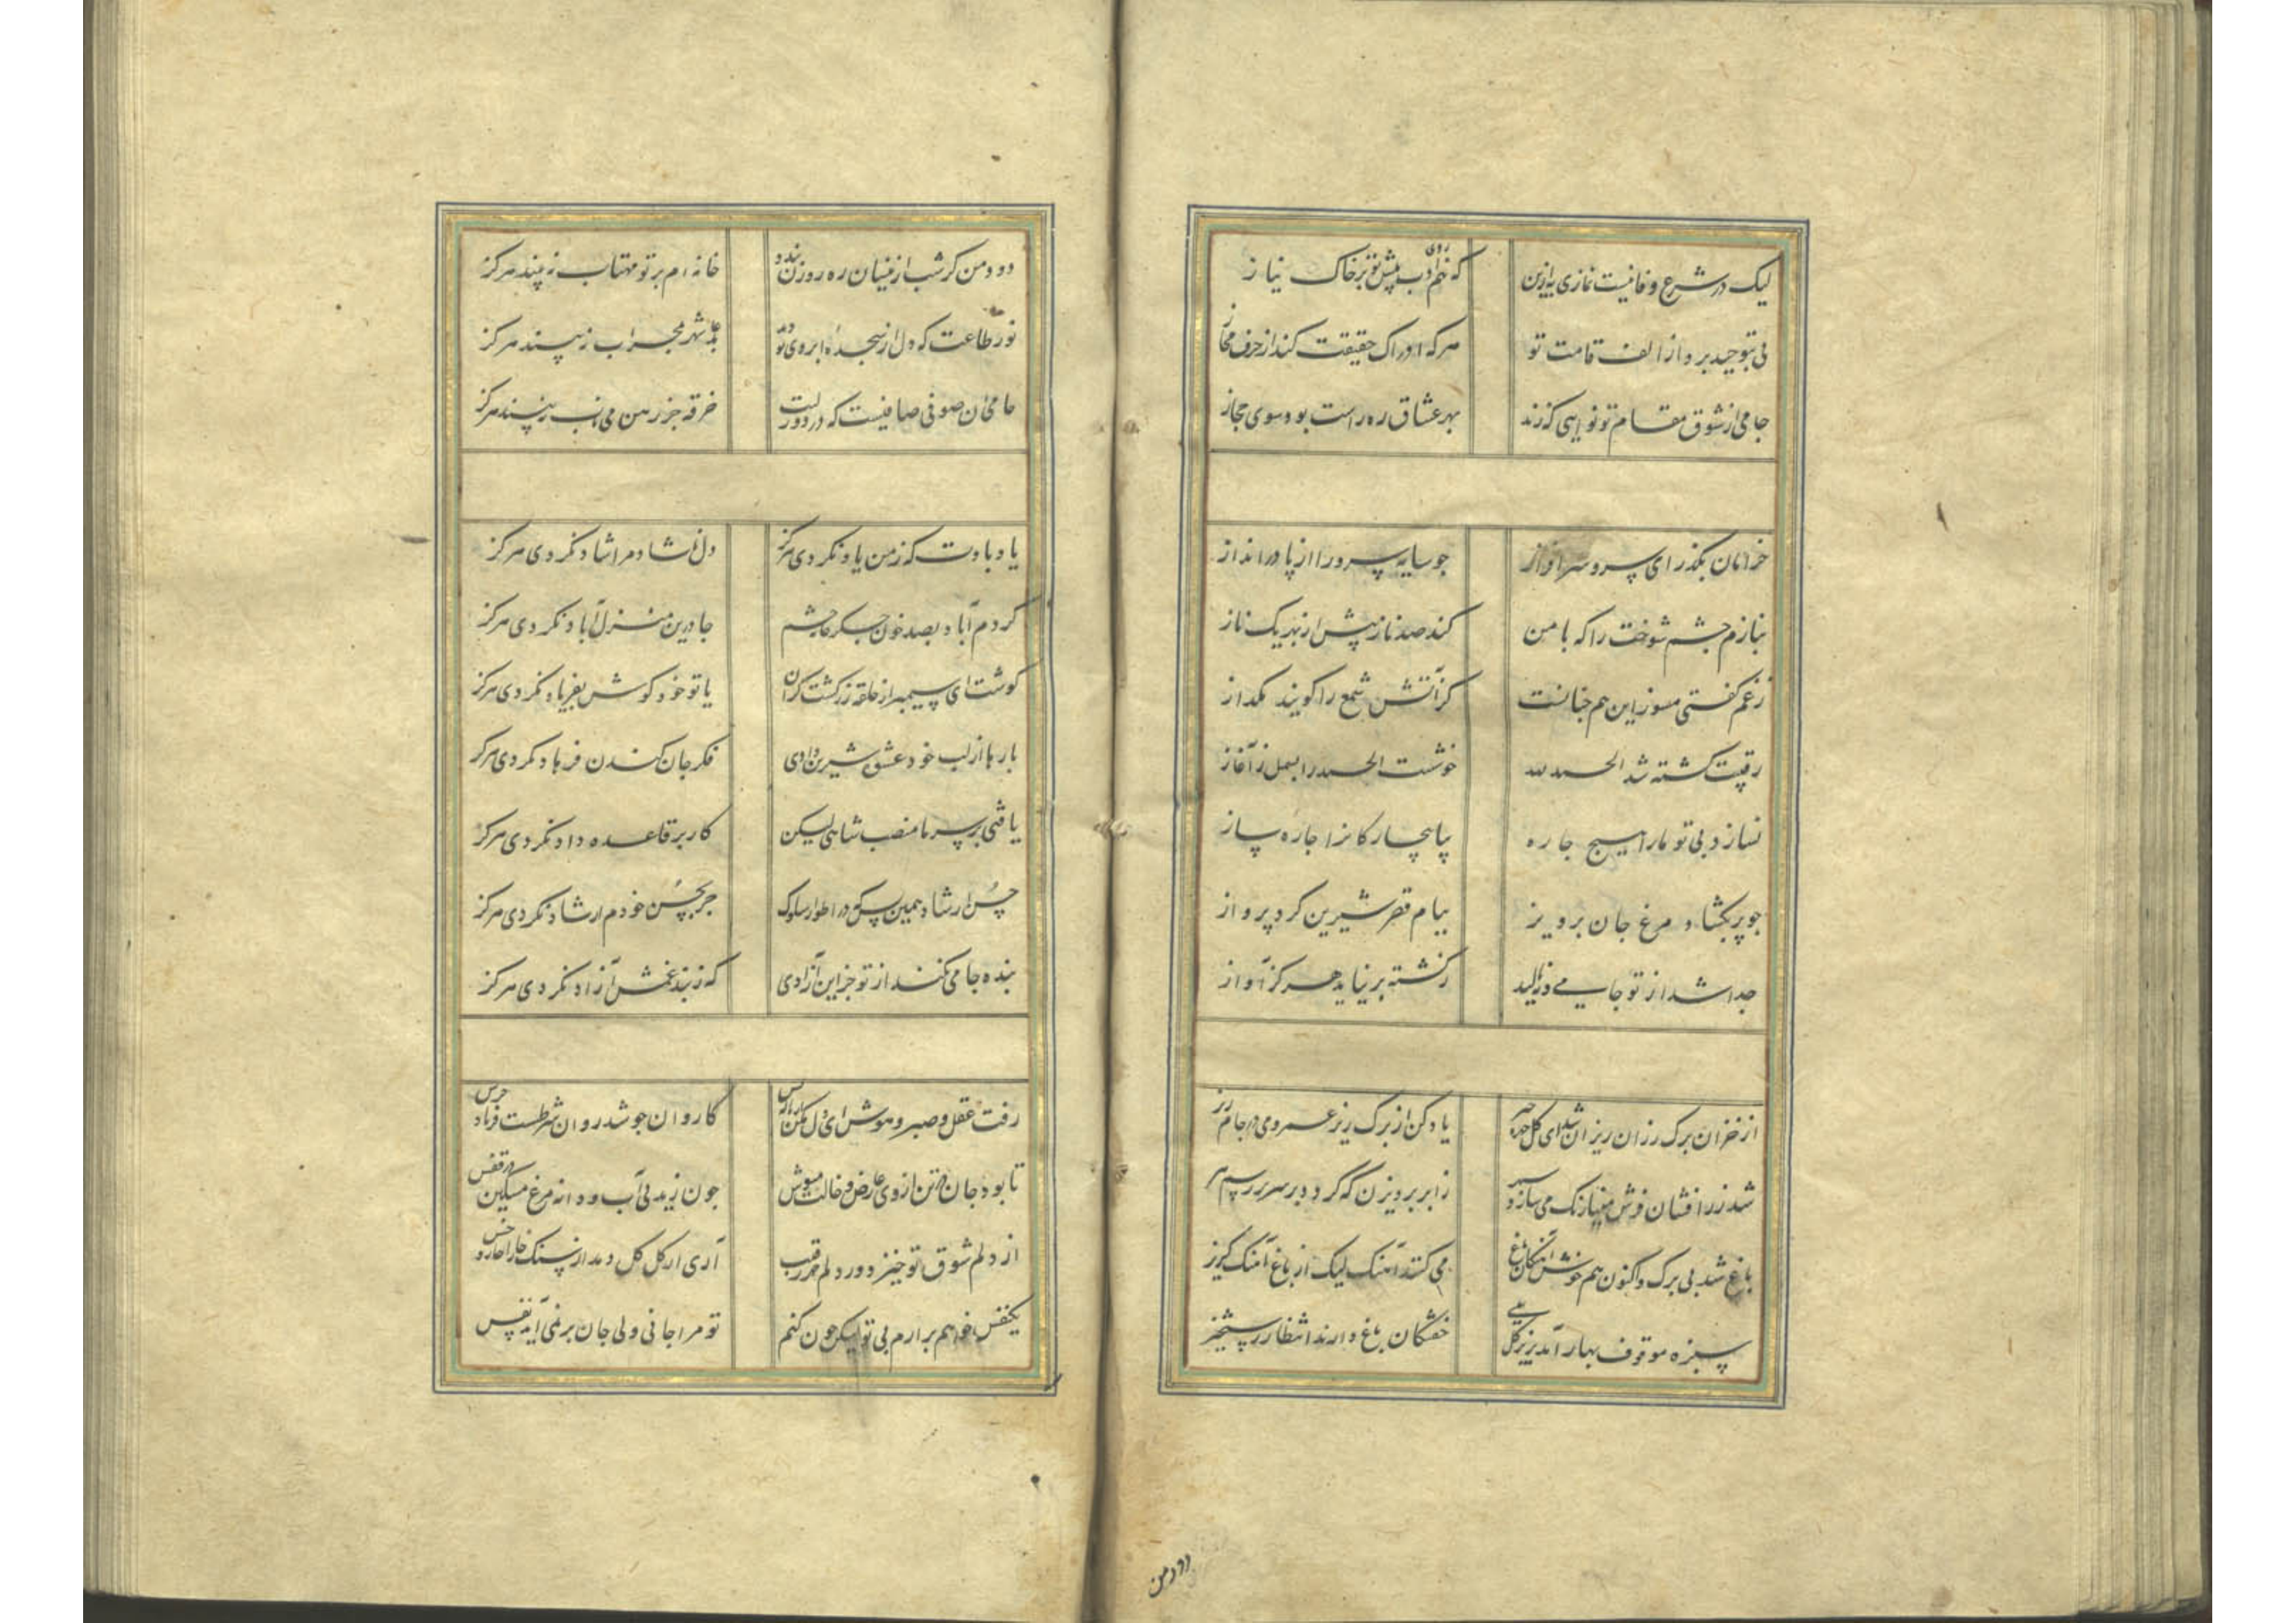 لیک در شرع وفا نیست نمازی به ازین که نهم روی ادب پیش تو بر خاک نیاز
پی بتوحید برد از الف قامت تو هر که ادراک حقیقت کند از حرف مجاز
جامی از شوق مقام تو نوایی که زند بهر عشاق ره راست بود سوی حجاز
خرامان بگذر ای سرو سرافراز جو سایه سرو را از پا در انداز
بنازم چشم شوخت را که با من کند صد ناز پیش از بهر یک ناز
زغم کفتی مسوز این هم جنانست کز آتش شمع را کویند مکداز
رقیبت کشته شد الحمد لله خوشست الحمد را بسمل ز آغاز
نسازد بی تو ما را هیچ جاره بیا بیچارکانرا جاره ساز
جو پر بکشاد مرغ جان پرویز ببام قصر شیرین کرد پرواز
جدا شد از تو جامی و ننالید ز کشته بر نیاید هرکز آواز
از خزان برک رزان ریزان شد ای کل یاد کن از برک ریز عمر و می در جام ریز
شد زر افشان فرش می سازد ز ابر پرویزن که کردد بر سر
باغ شد بی برک و اکنون هم خوش باغ می کند آهنک لیک از باغ آهنک کریز
سبزه موقوف بهار آمد خفتکان باغ دارند انتظار رستخیز
دود من
دود من کر شب ازینسان ره روزن بندد خانه ام پرتو مهتاب نبیند هرکز
نور طاعت که دل از سجده ابروی تو دید عابد شهر بمحراب نبیند هرکز
جامی آن صوفی صافیست که در دور لبت خرقه جز رهن می ناب نبیند هرکز
یاد بادت که ز من یاد نکردی هرکز دل ناشاد مرا شاد نکردی هرکز
کردم آباد بصد خون جکر خانه چشم جا درین منزل آباد نکردی هرکز
کوشت ای سیمبر از حلقه زر کشت کران یا تو خود کوش بفریاد نکردی هرکز
بارها از لب خود عشوه شیرین دادی فکر جان کندن فرهاد نکردی هرکز
یافتی بر سر ما منصب شاهی لیکن کار بر قاعده داد نکردی هرکز
حسن ارشاد همین بس که در اطوار سلوک جز بحسن خودم ارشاد نکردی هرکز
بنده جامی نکند از تو جز این آزادی که ز بند غمش آزاد نکردی هرکز
رفت عقل و صبر و هوش ای دل مکن کاروان جون شد روان شرطست فریاد جرس
تا بود جان در تن از روی عارض و خالت مپوش جون زید بی آب و دانه مرغ مسکین در قفس
از دلم شوق تو خیزد ور دلم رقیب آری از کل کل دمد از سنک خارا خار و خس
یکنفس خواهم برارم بی تو لیکن جون کنم تو مرا جانی و لی جان بر نمی آید نفس